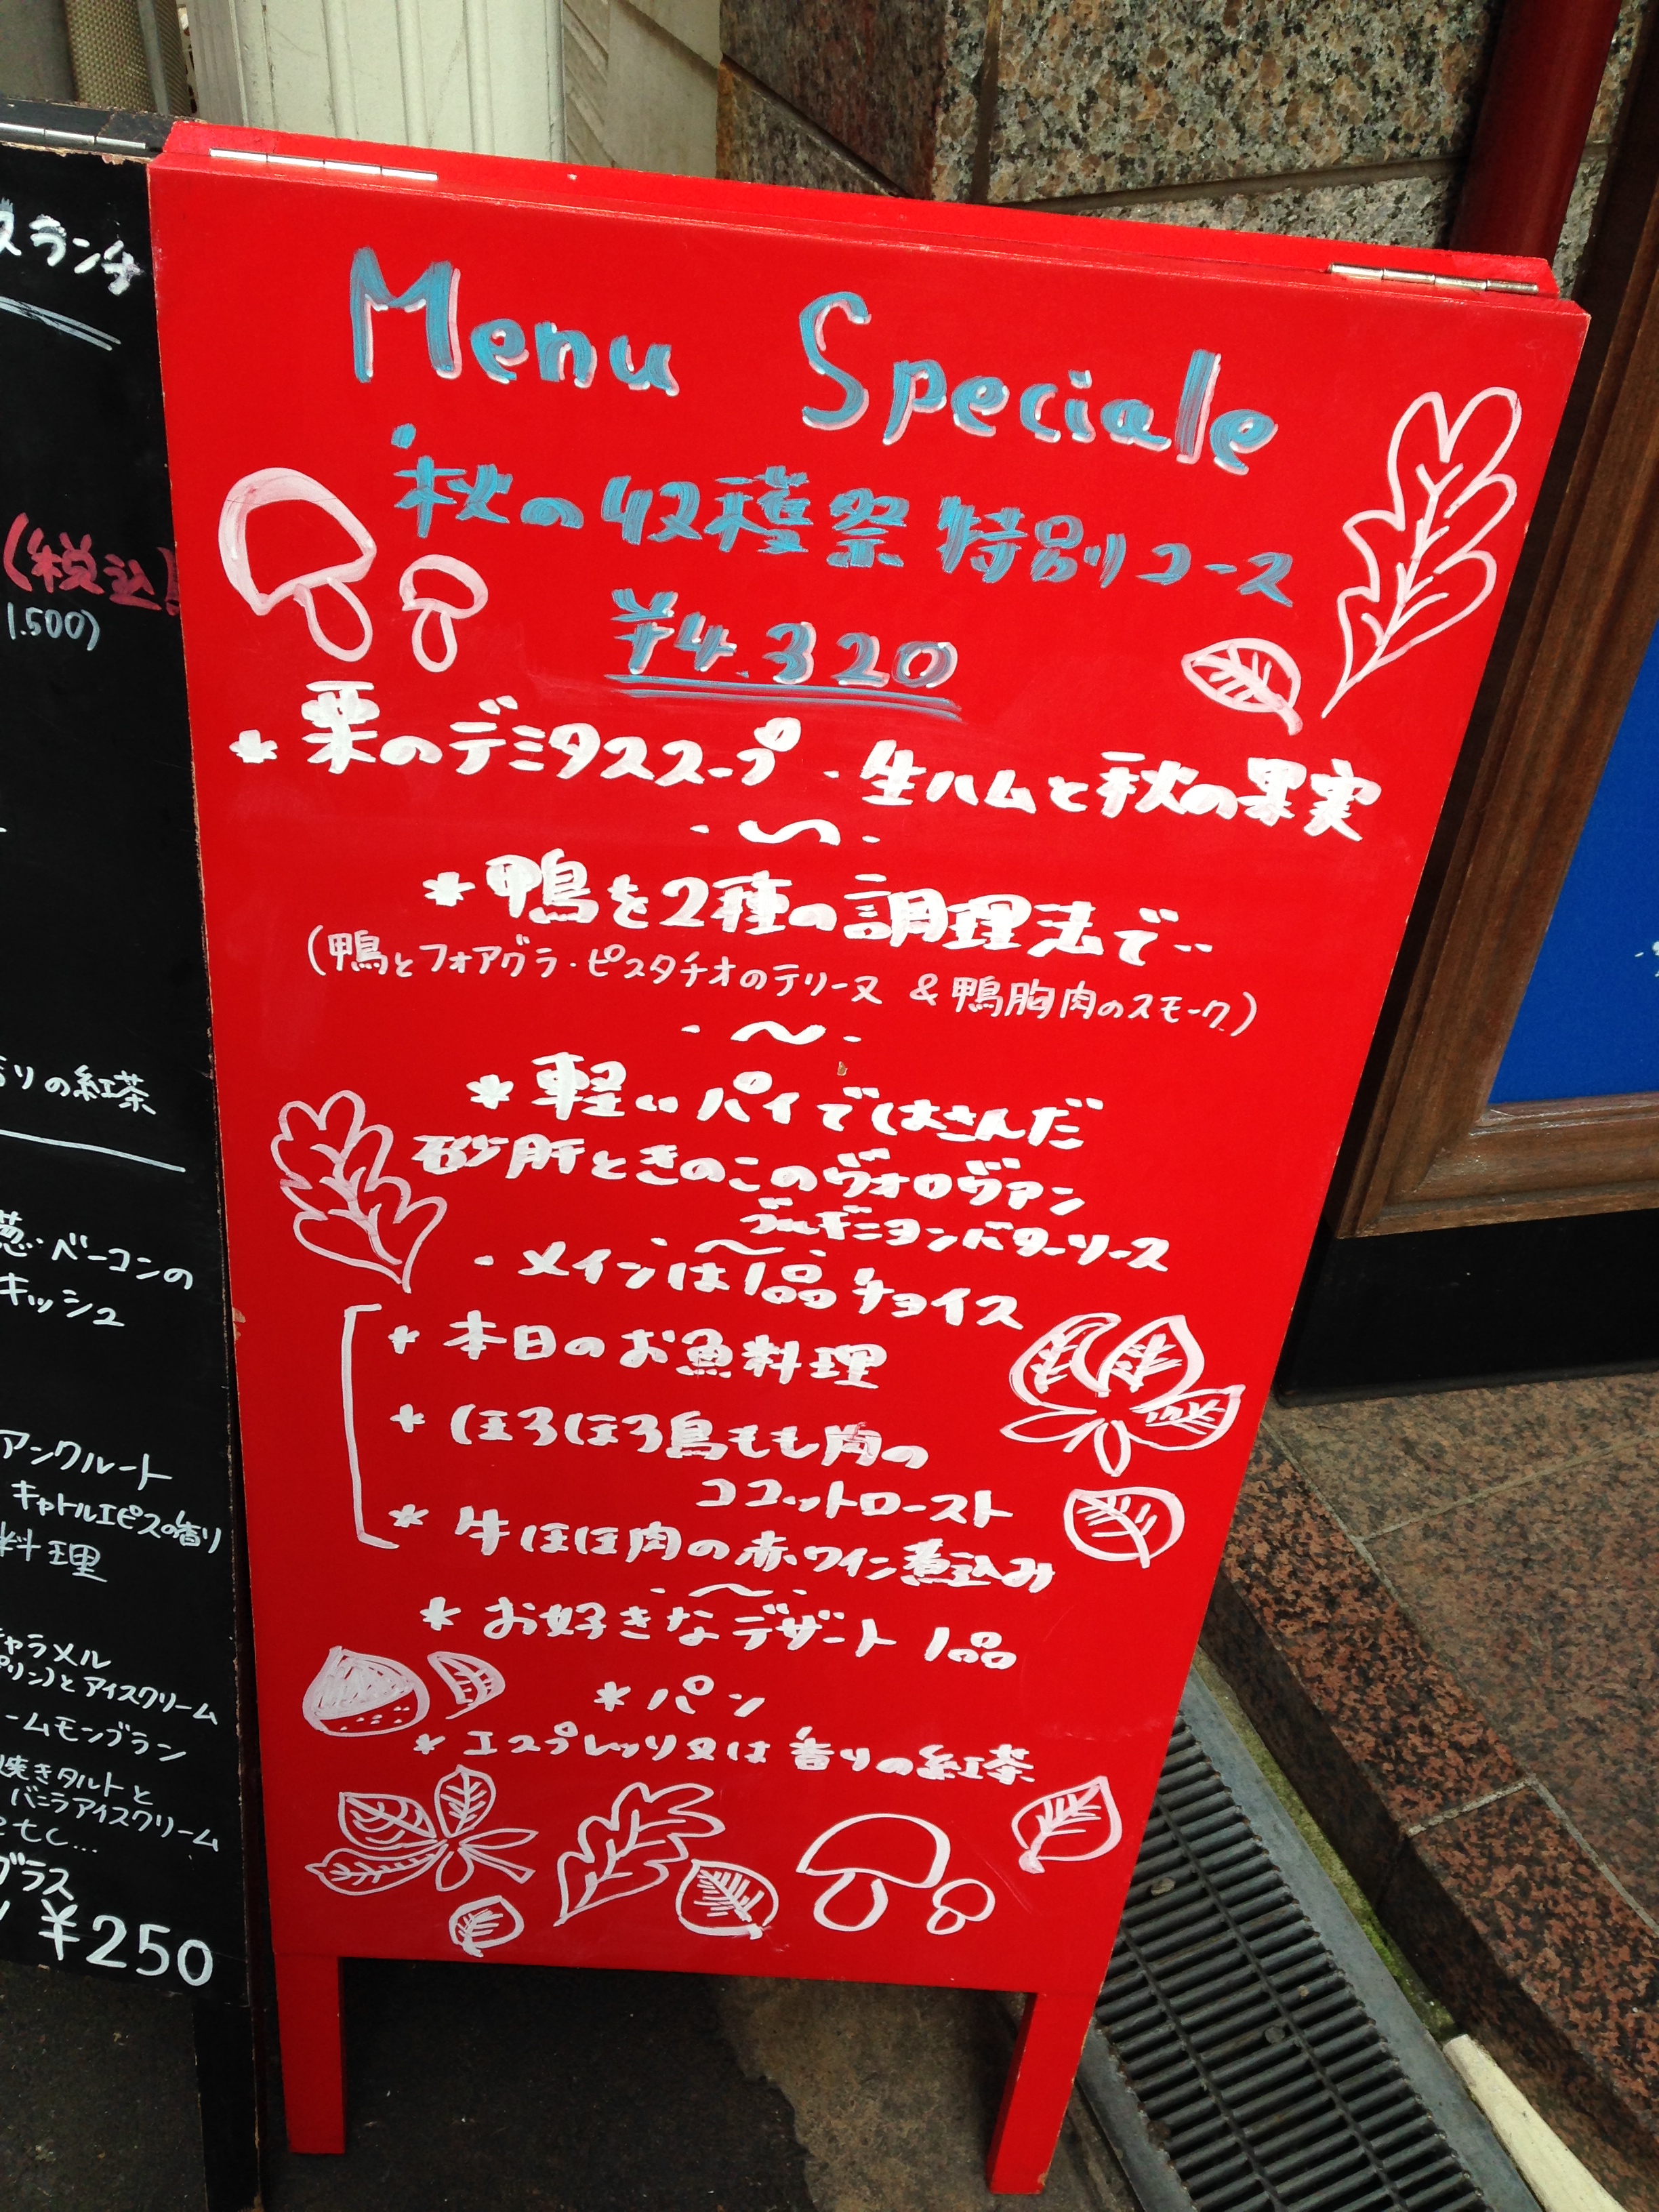 Menu Speciale
秋の収穫祭 特別コース
¥4.320
* 栗のデミタススープ ・生ハムと秋の果実
・~・
* 鴨を2種の調理法で‥
(鴨とフォアグラ・ピスタチオのテリーヌ & 鴨胸肉のスモーク)
・~・
* 軽いパイではさんだ
砂肝ときのこのヴォロヴァン
ブルギニヨンバターソース
・~・
・メインは1品チョイス
* 本日のお魚料理
* ほろほろ鳥もも肉の
ココットロースト
* 牛ほほ肉の赤ワイン煮込み
・~・
* お好きなデザート 1品
* パン
* エスプレッソ又は 香りの紅茶
スランチ
(税込)
1.500)
りの紅茶
葱・ベーコンの
キッシュ
アンクルート
キャトルエピスの香り
料理
キャラメル
プリン)とアイスクリーム
ームモンブラン
焼きタルトと
バニラアイスクリーム
etc...
グラス
¥250